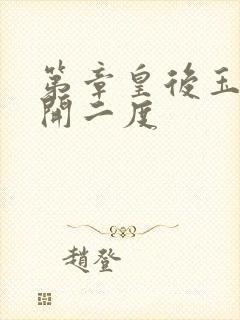 第章皇後玉
開二度
趙登